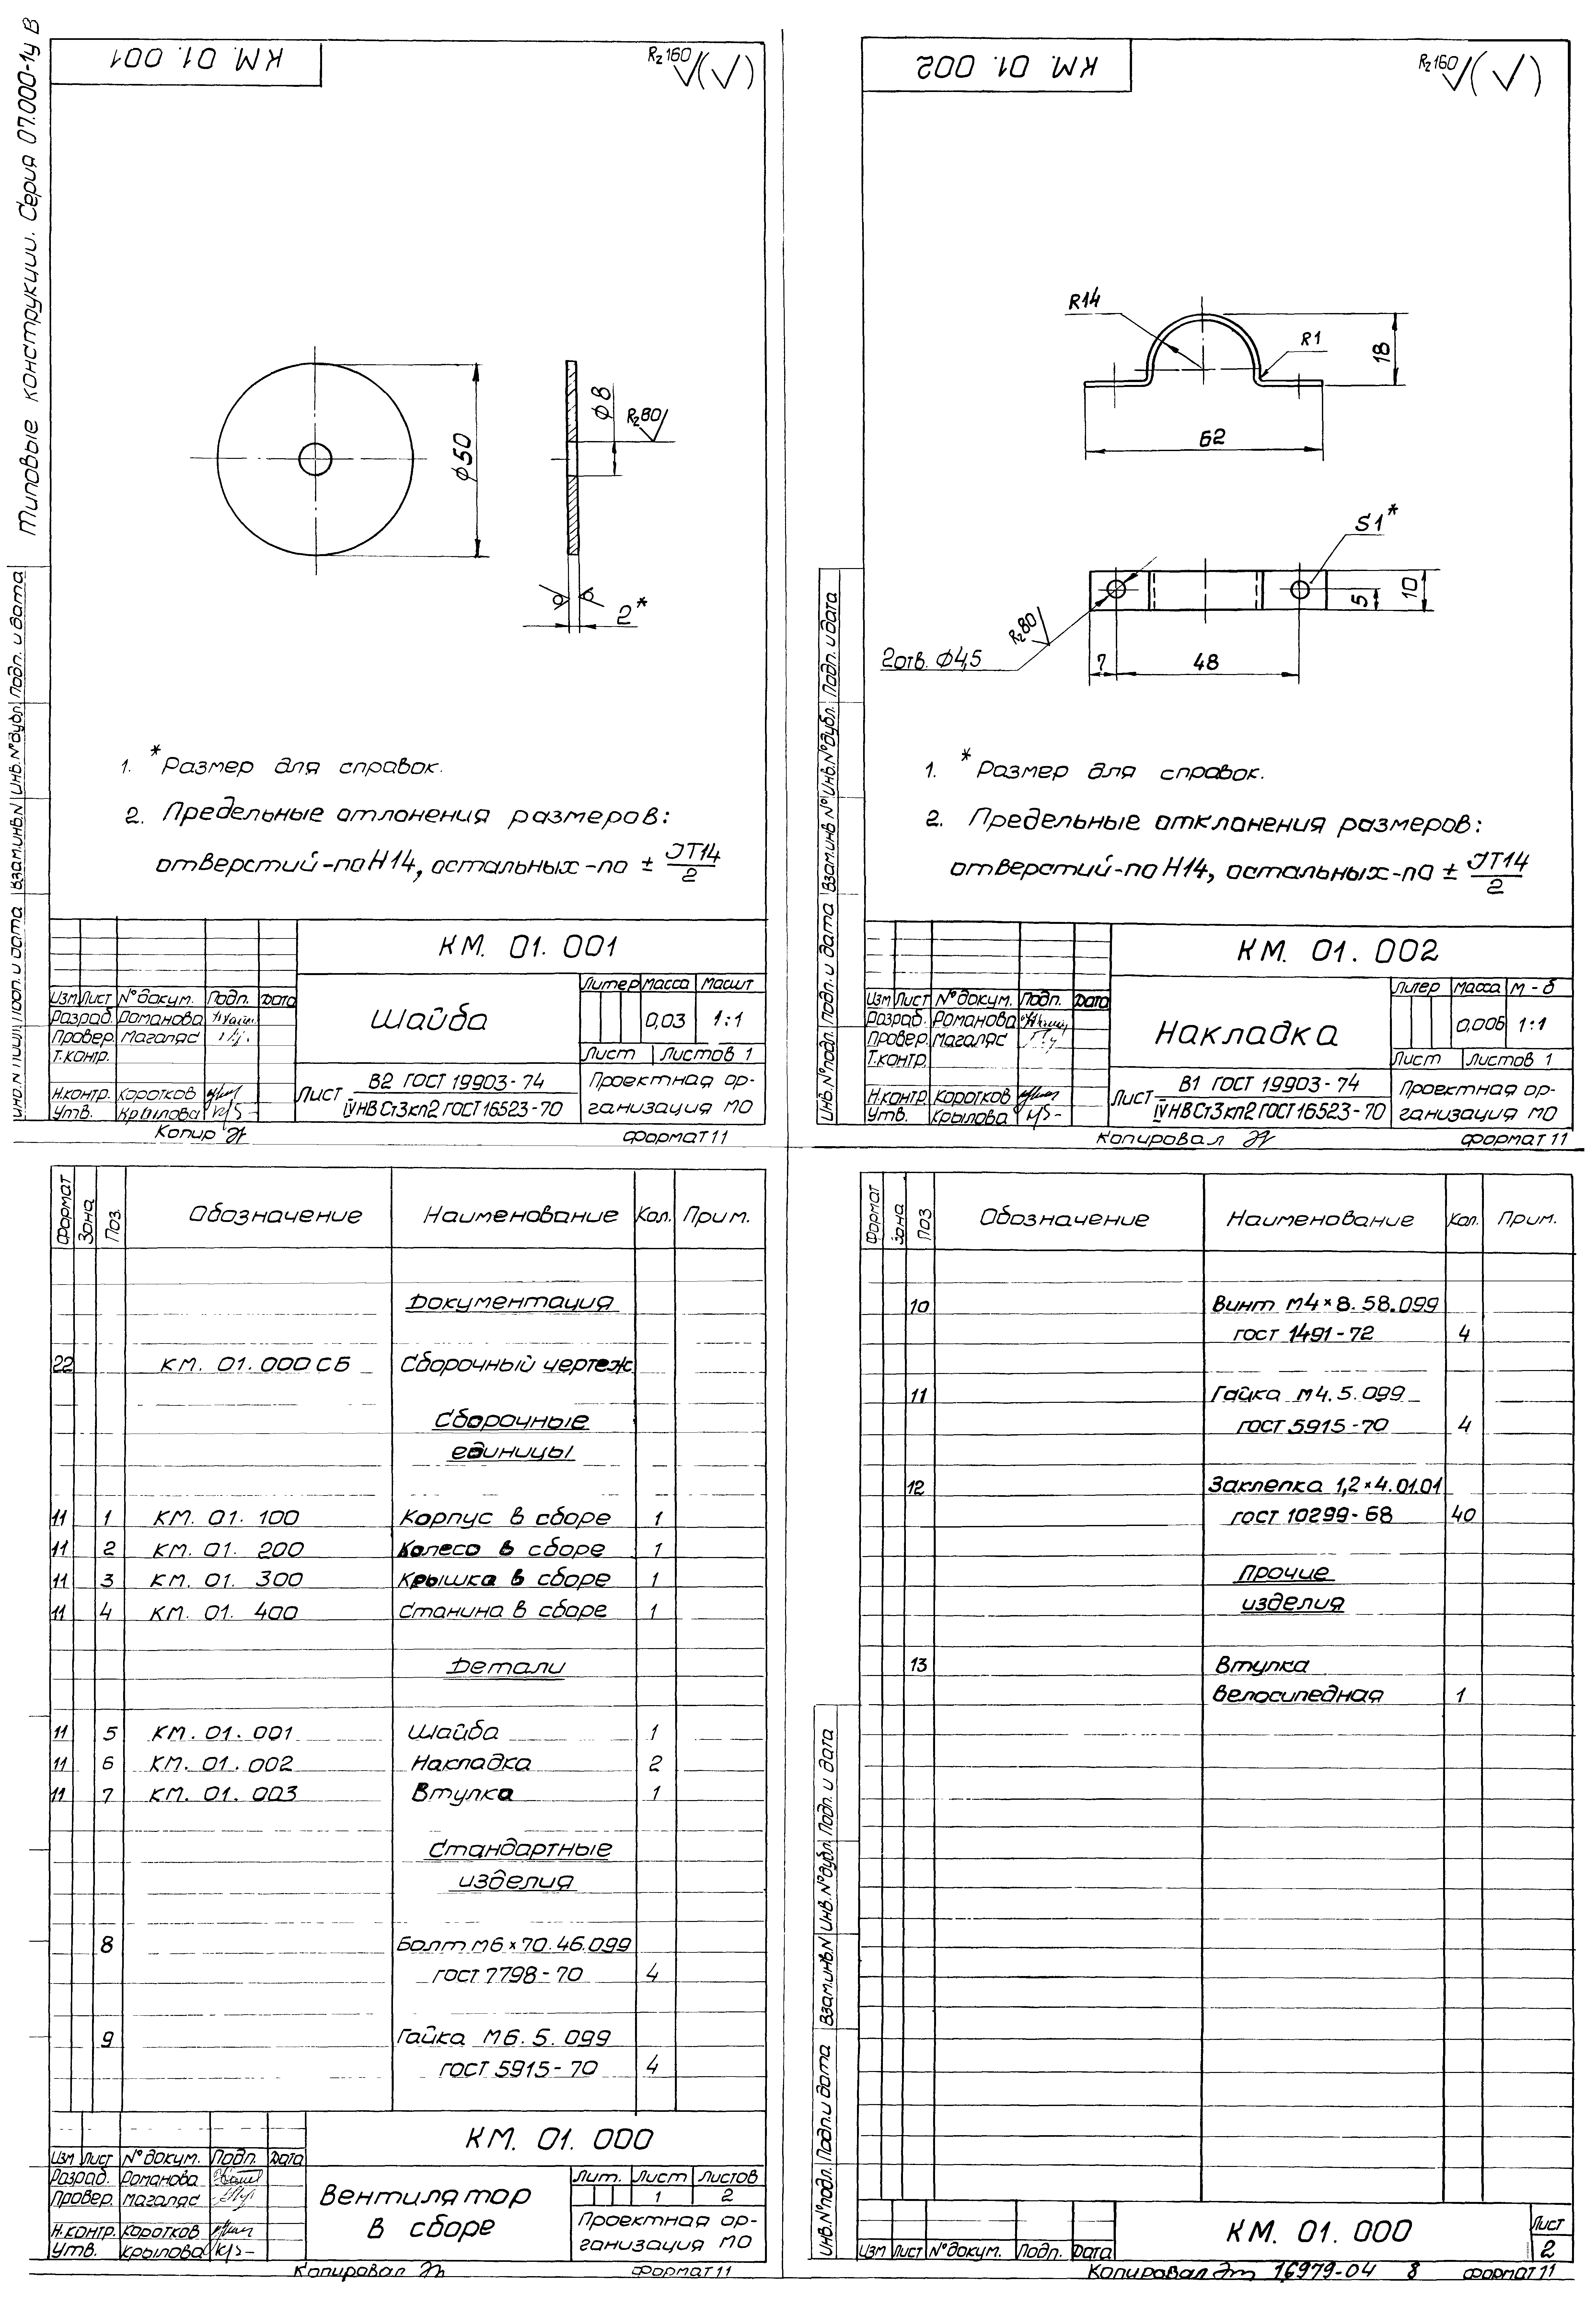 Типовые конструкции. Серия 07.000-1у В
КМ. 01. 001
Rz160
ϕ50
ϕ8
Rz80
2*
1. *Размер для справок.
2. Предельные отлонения размеров:
отверстий-по Н14, остальных-по ± JT14/2
Подп. и дата
Инв.N°дубл.
Взам.инв.N
Подп. и дата
КМ. 01. 001
Изм Лист N°докум. Подп. Дата
Разраб. Романова
Провер. Магаляс
Т.контр.
Н.контр. Коротков
Утв. Крылова
Шайба
Литер Масса Масшт
0,03 1:1
Лист Листов 1
Лист В2 ГОСТ 19903-74
IVНВСт3кп2 ГОСТ 16523-70
Проектная ор-
ганизация МО
Копир
Формат 11
КМ. 01. 002
Rz160
R14
R1
18
62
S1*
Rz80
2отв. ϕ4,5
7
48
5
10
1. *Размер для справок.
2. Предельные отклонения размеров:
отверстий-по Н14, остальных-по ± JT14/2
Подп. и дата
Инв.N°дубл.
Взам.инв N°
Подп. и дата
Инв.N°подл.
КМ. 01. 002
Изм Лист N°докум. Подп. Дата
Разраб. Романова
Провер. Магаляс
Т.контр.
Н.контр. Коротков
Утв. Крылова
Накладка
Литер Масса М-б
0,006 1:1
Лист Листов 1
Лист В1 ГОСТ 19903-74
IVНВСт3кп2 ГОСТ 16523-70
Проектная ор-
ганизация МО
Копировал
Формат 11
Формат Зона Поз. Обозначение Наименование Кол. Прим.
Документация
22 КМ. 01. 000 СБ Сборочный чертеж
Сборочные
единицы
11 1 КМ. 01. 100 Корпус в сборе 1
11 2 КМ. 01. 200 Колесо в сборе 1
11 3 КМ. 01. 300 Крышка в сборе 1
11 4 КМ. 01. 400 Станина в сборе 1
Детали
11 5 КМ. 01. 001 Шайба 1
11 6 КМ. 01. 002 Накладка 2
11 7 КМ. 01. 003 Втулка 1
Стандартные
изделия
8 Болт М6×70.46.099
ГОСТ 7798-70 4
9 Гайка М6.5.099
ГОСТ 5915-70 4
КМ. 01. 000
Изм Лист N°докум. Подп. Дата
Разраб. Романова
Провер. Магаляс
Н.контр. Коротков
Утв. Крылова
Вентилятор
в сборе
Лит. Лист Листов
1 2
Проектная ор-
ганизация МО
Копировал
Формат 11
Формат Зона Поз Обозначение Наименование Кол. Прим.
10 Винт М4×8.58.099
ГОСТ 1491-72 4
11 Гайка М4.5.099
ГОСТ 5915-70 4
12 Заклепка 1,2×4.01.01
ГОСТ 10299-68 40
Прочие
изделия
13 Втулка
велосипедная 1
Подп. и дата
Инв.N°дубл.
Взам.инв.N
Подп.и дата
Инв.N°подл.
КМ. 01. 000
Лист
2
Изм Лист N°докум. Подп. Дата
Копировал 16979-04 8 Формат 11